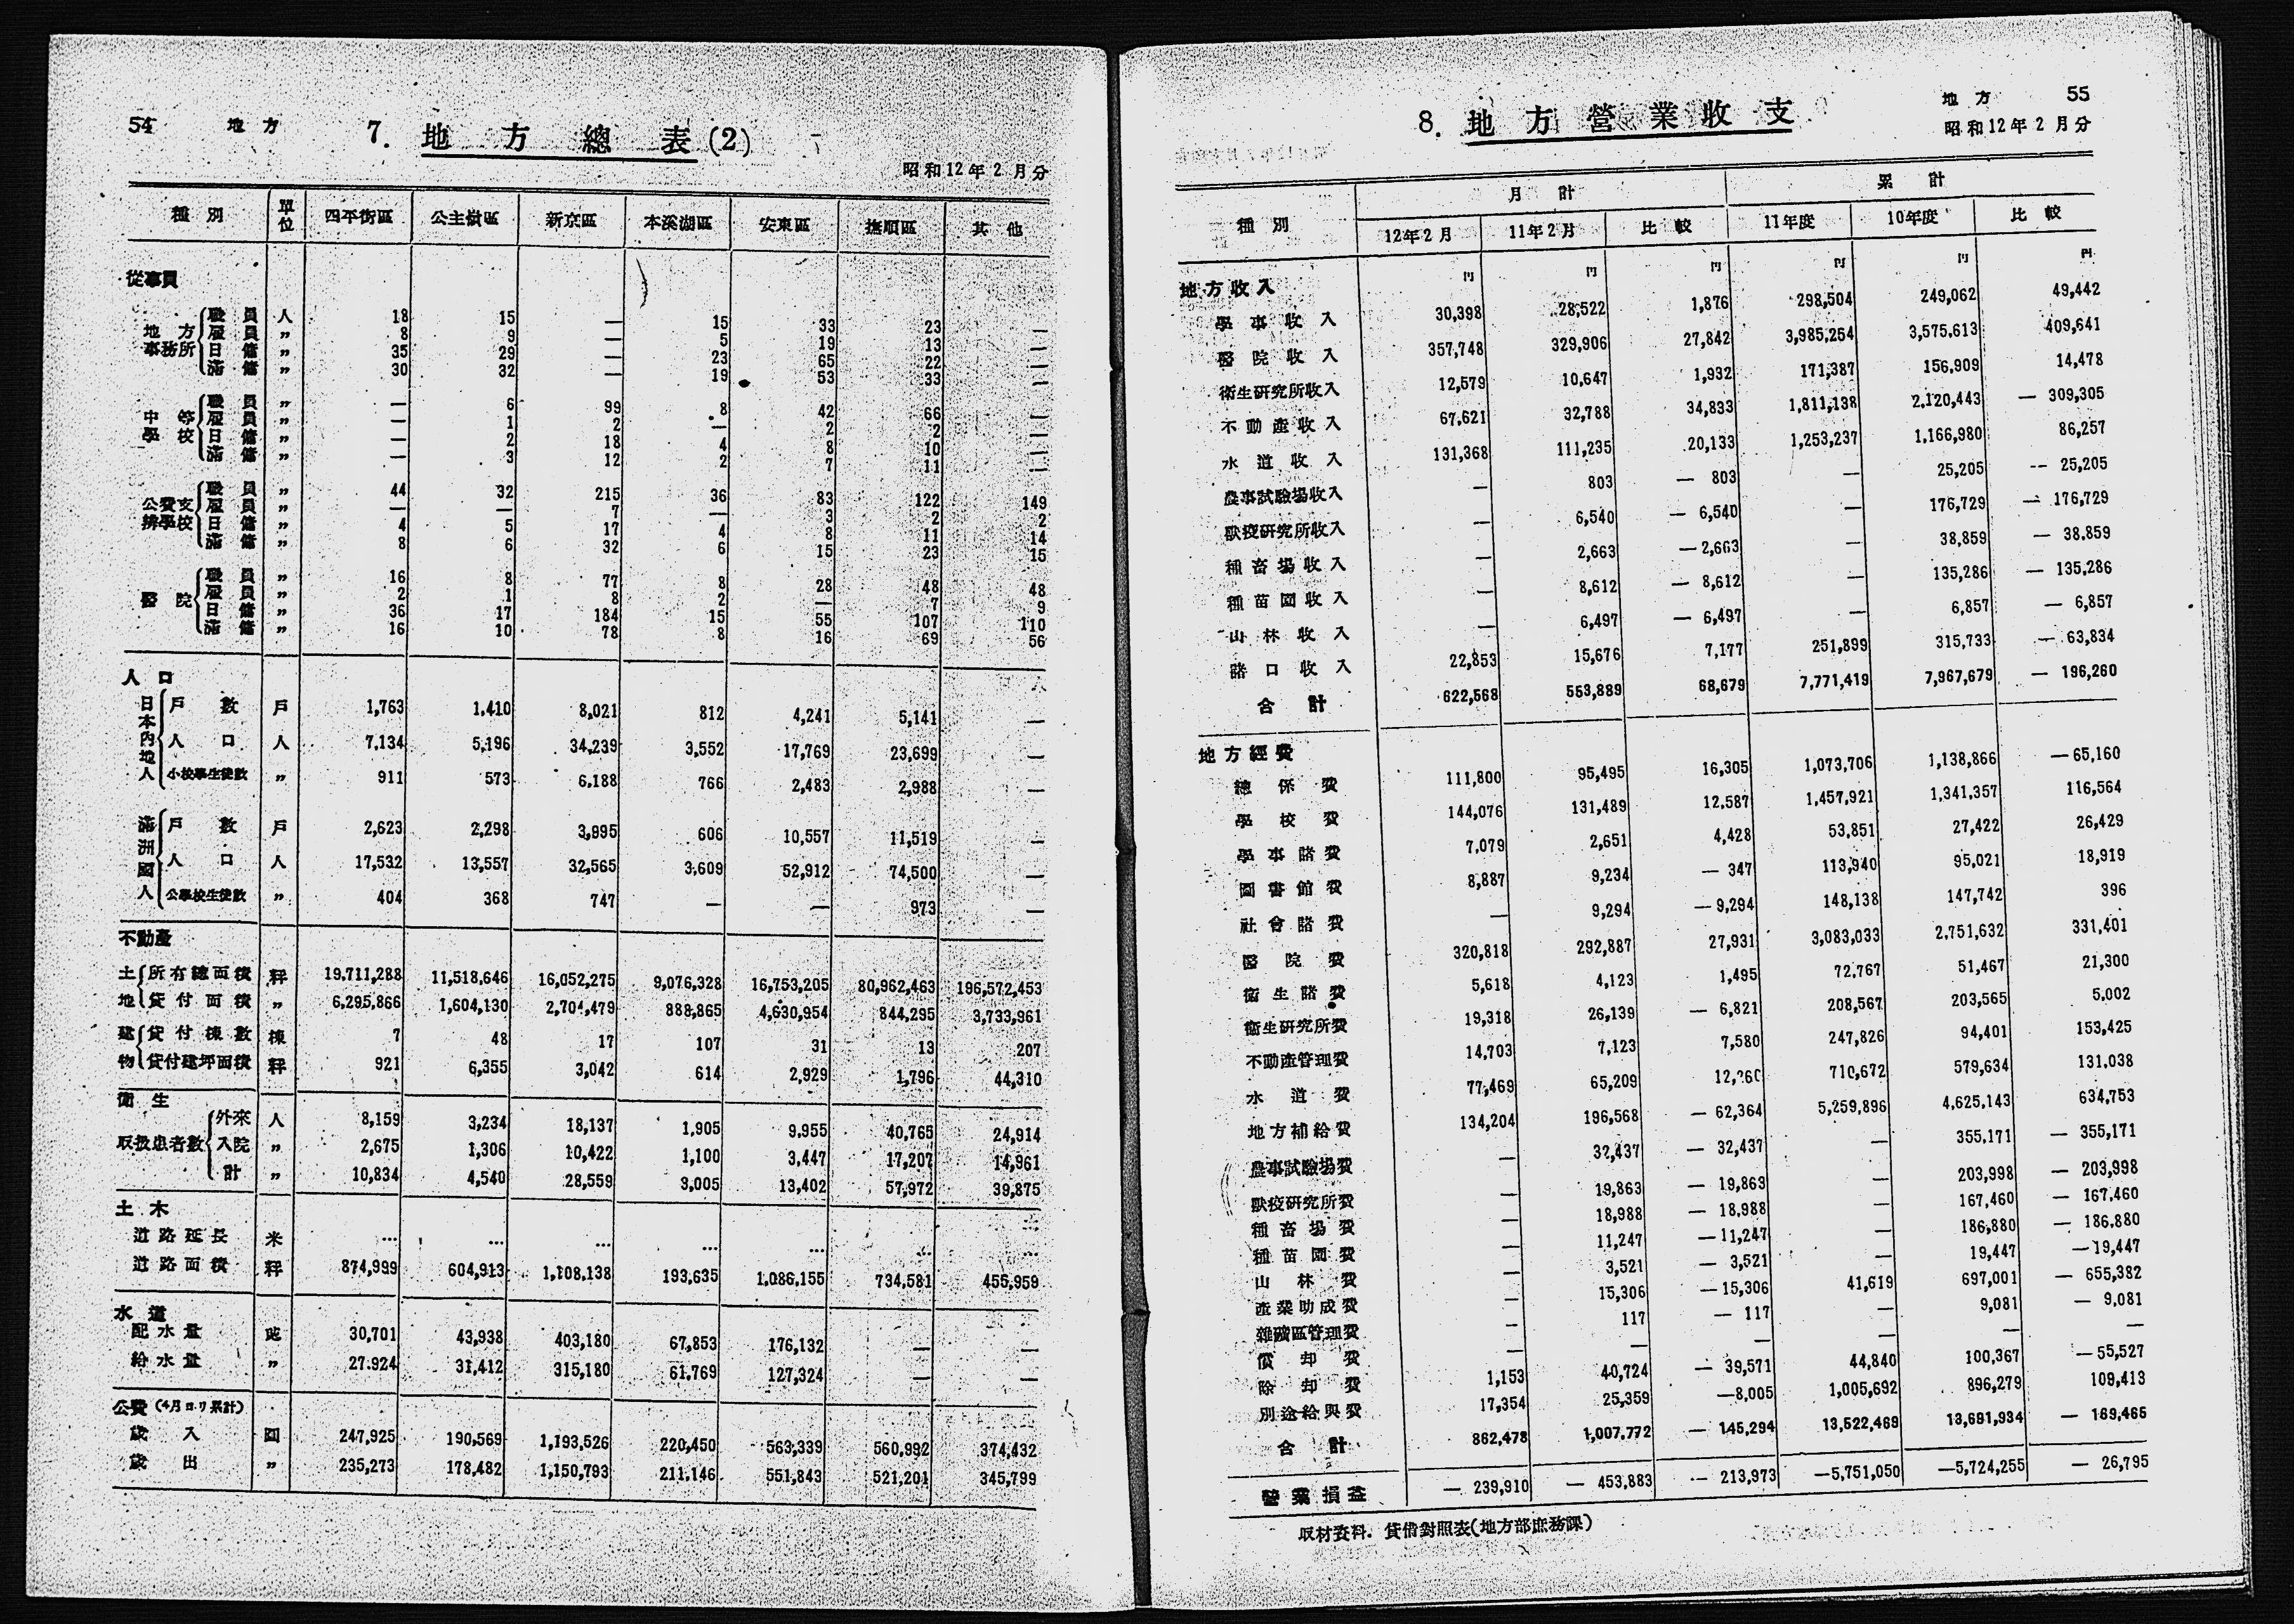 54 地方
7. 地方總表(2)
昭和12年2月分
種別 單位 四平街區 公主嶺區 新京區 本溪湖區 安東區 撫順區 其他
從事員
地方事務所 職員 人 18 15 — 15 33 23 —
雇員 〃 8 9 — 5 19 13 —
日傭 〃 35 29 — 23 65 22 —
滿傭 〃 30 32 — 19 53 33 —
中等學校 職員 〃 — 6 99 8 42 66 —
雇員 〃 — 1 2 — 2 2 —
日傭 〃 — 2 18 4 8 10 —
滿傭 〃 — 3 12 2 7 11 —
公費支辨學校 職員 〃 44 32 215 36 83 122 149
雇員 〃 — — 7 — 3 2 2
日傭 〃 4 5 17 4 8 11 14
滿傭 〃 8 6 32 6 15 23 15
醫院 職員 〃 16 8 77 8 28 48 48
雇員 〃 2 1 8 2 — 7 9
日傭 〃 36 17 184 15 55 107 110
滿傭 〃 16 10 78 8 16 69 56
人口
日本內地人 戶數 戶 1,763 1,410 8,021 812 4,241 5,141 —
人口 人 7,134 5,196 34,239 3,552 17,769 23,699 —
小校學生徒數 〃 911 573 6,188 766 2,483 2,988 —
滿洲國人 戶數 戶 2,623 2,298 3,895 606 10,557 11,519 —
人口 人 17,532 13,557 32,565 3,609 52,912 74,500 —
公學校生徒數 〃 404 368 747 — — 973 —
不動產
土地 所有總面積 粁 19,711,288 11,518,646 16,052,275 9,076,328 16,753,205 80,962,463 196,572,453
貸付面積 〃 6,295,866 1,604,130 2,704,479 888,865 4,630,954 844,295 3,733,961
建物 貸付棟數 棟 7 48 17 107 31 13 207
貸付建坪面積 921 6,355 3,042 614 2,929 1,796 44,310
衛生
取扱患者數 外來 人 8,159 3,234 18,137 1,905 9,955 40,765 24,914
入院 〃 2,675 1,306 10,422 1,100 3,447 17,207 14,961
計 〃 10,834 4,540 28,559 3,005 13,402 57,972 39,875
土木
道路延長 米 … … … … … … …
道路面積 874,999 604,913 1,108,138 193,635 1,086,155 734,581 455,959
水道
配水量 瓲 30,701 43,938 403,180 67,853 176,132 — —
給水量 〃 27,924 31,412 315,180 61,769 127,324 — —
公費(4月ヨリ累計)
歲入 圓 247,925 190,569 1,193,526 220,450 563,339 560,992 374,432
歲出 〃 235,273 178,482 1,150,793 211,146 551,843 521,201 345,799
地方 55
8. 地方營業收支
昭和12年2月分
種別 月計 累計
12年2月 11年2月 比較 11年度 10年度 比較
地方收入 円 円 円 円 円 円
學事收入 30,398 28,522 1,876 298,504 249,062 49,442
醫院收入 357,748 329,906 27,842 3,985,254 3,575,613 409,641
衛生硏究所收入 12,579 10,647 1,932 171,387 156,909 14,478
不動產收入 67,621 32,788 34,833 1,811,138 2,120,443 — 309,305
水道收入 131,368 111,235 20,133 1,253,237 1,166,980 86,257
農事試驗場收入 — 803 — 803 — 25,205 — 25,205
獸疫硏究所收入 — 6,540 — 6,540 — 176,729 — 176,729
種畜場收入 — 2,663 — 2,663 — 38,859 — 38,859
種苗園收入 — 8,612 — 8,612 — 135,286 — 135,286
山林收入 — 6,497 — 6,497 — 6,857 — 6,857
諸口收入 22,853 15,676 7,177 251,899 315,733 — 63,834
合計 622,568 553,889 68,679 7,771,419 7,967,679 — 196,260
地方經費
總係費 111,800 95,495 16,305 1,073,706 1,138,866 — 65,160
學校費 144,076 131,489 12,587 1,457,921 1,341,357 116,564
學事諸費 7,079 2,651 4,428 53,851 27,422 26,429
圖書館費 8,887 9,234 — 347 113,940 95,021 18,919
社會諸費 — 9,294 — 9,294 148,138 147,742 396
醫院費 320,818 292,887 27,931 3,083,033 2,751,632 331,401
衛生諸費 5,618 4,123 1,495 72,767 51,467 21,300
衛生硏究所費 19,318 26,139 — 6,821 208,567 203,565 5,002
不動產管理費 14,703 7,123 7,580 247,826 94,401 153,425
水道費 77,469 65,209 12,260 710,672 579,634 131,038
地方補給費 134,204 196,568 — 62,364 5,259,896 4,625,143 634,753
農事試驗場費 — 32,437 — 32,437 — 355,171 — 355,171
獸疫硏究所費 — 19,863 — 19,863 — 203,998 — 203,998
種畜場費 — 18,988 — 18,988 — 167,460 — 167,460
種苗園費 — 11,247 — 11,247 — 186,880 — 186,880
山林費 — 3,521 — 3,521 — 19,447 — 19,447
產業助成費 — 15,306 — 15,306 41,619 697,001 — 655,382
雜礦區管理費 — 117 — 117 — 9,081 — 9,081
償却費 — — — — — —
除却費 1,153 40,724 — 39,571 44,840 100,367 — 55,527
別途給與費 17,354 25,359 —8,005 1,005,692 896,279 109,413
合計 862,478 1,007,772 — 145,294 13,522,469 13,691,934 — 169,465
營業損益 — 239,910 — 453,883 — 213,973 —5,751,050 —5,724,255 — 26,795
取材資料. 貸借對照表(地方部庶務課)